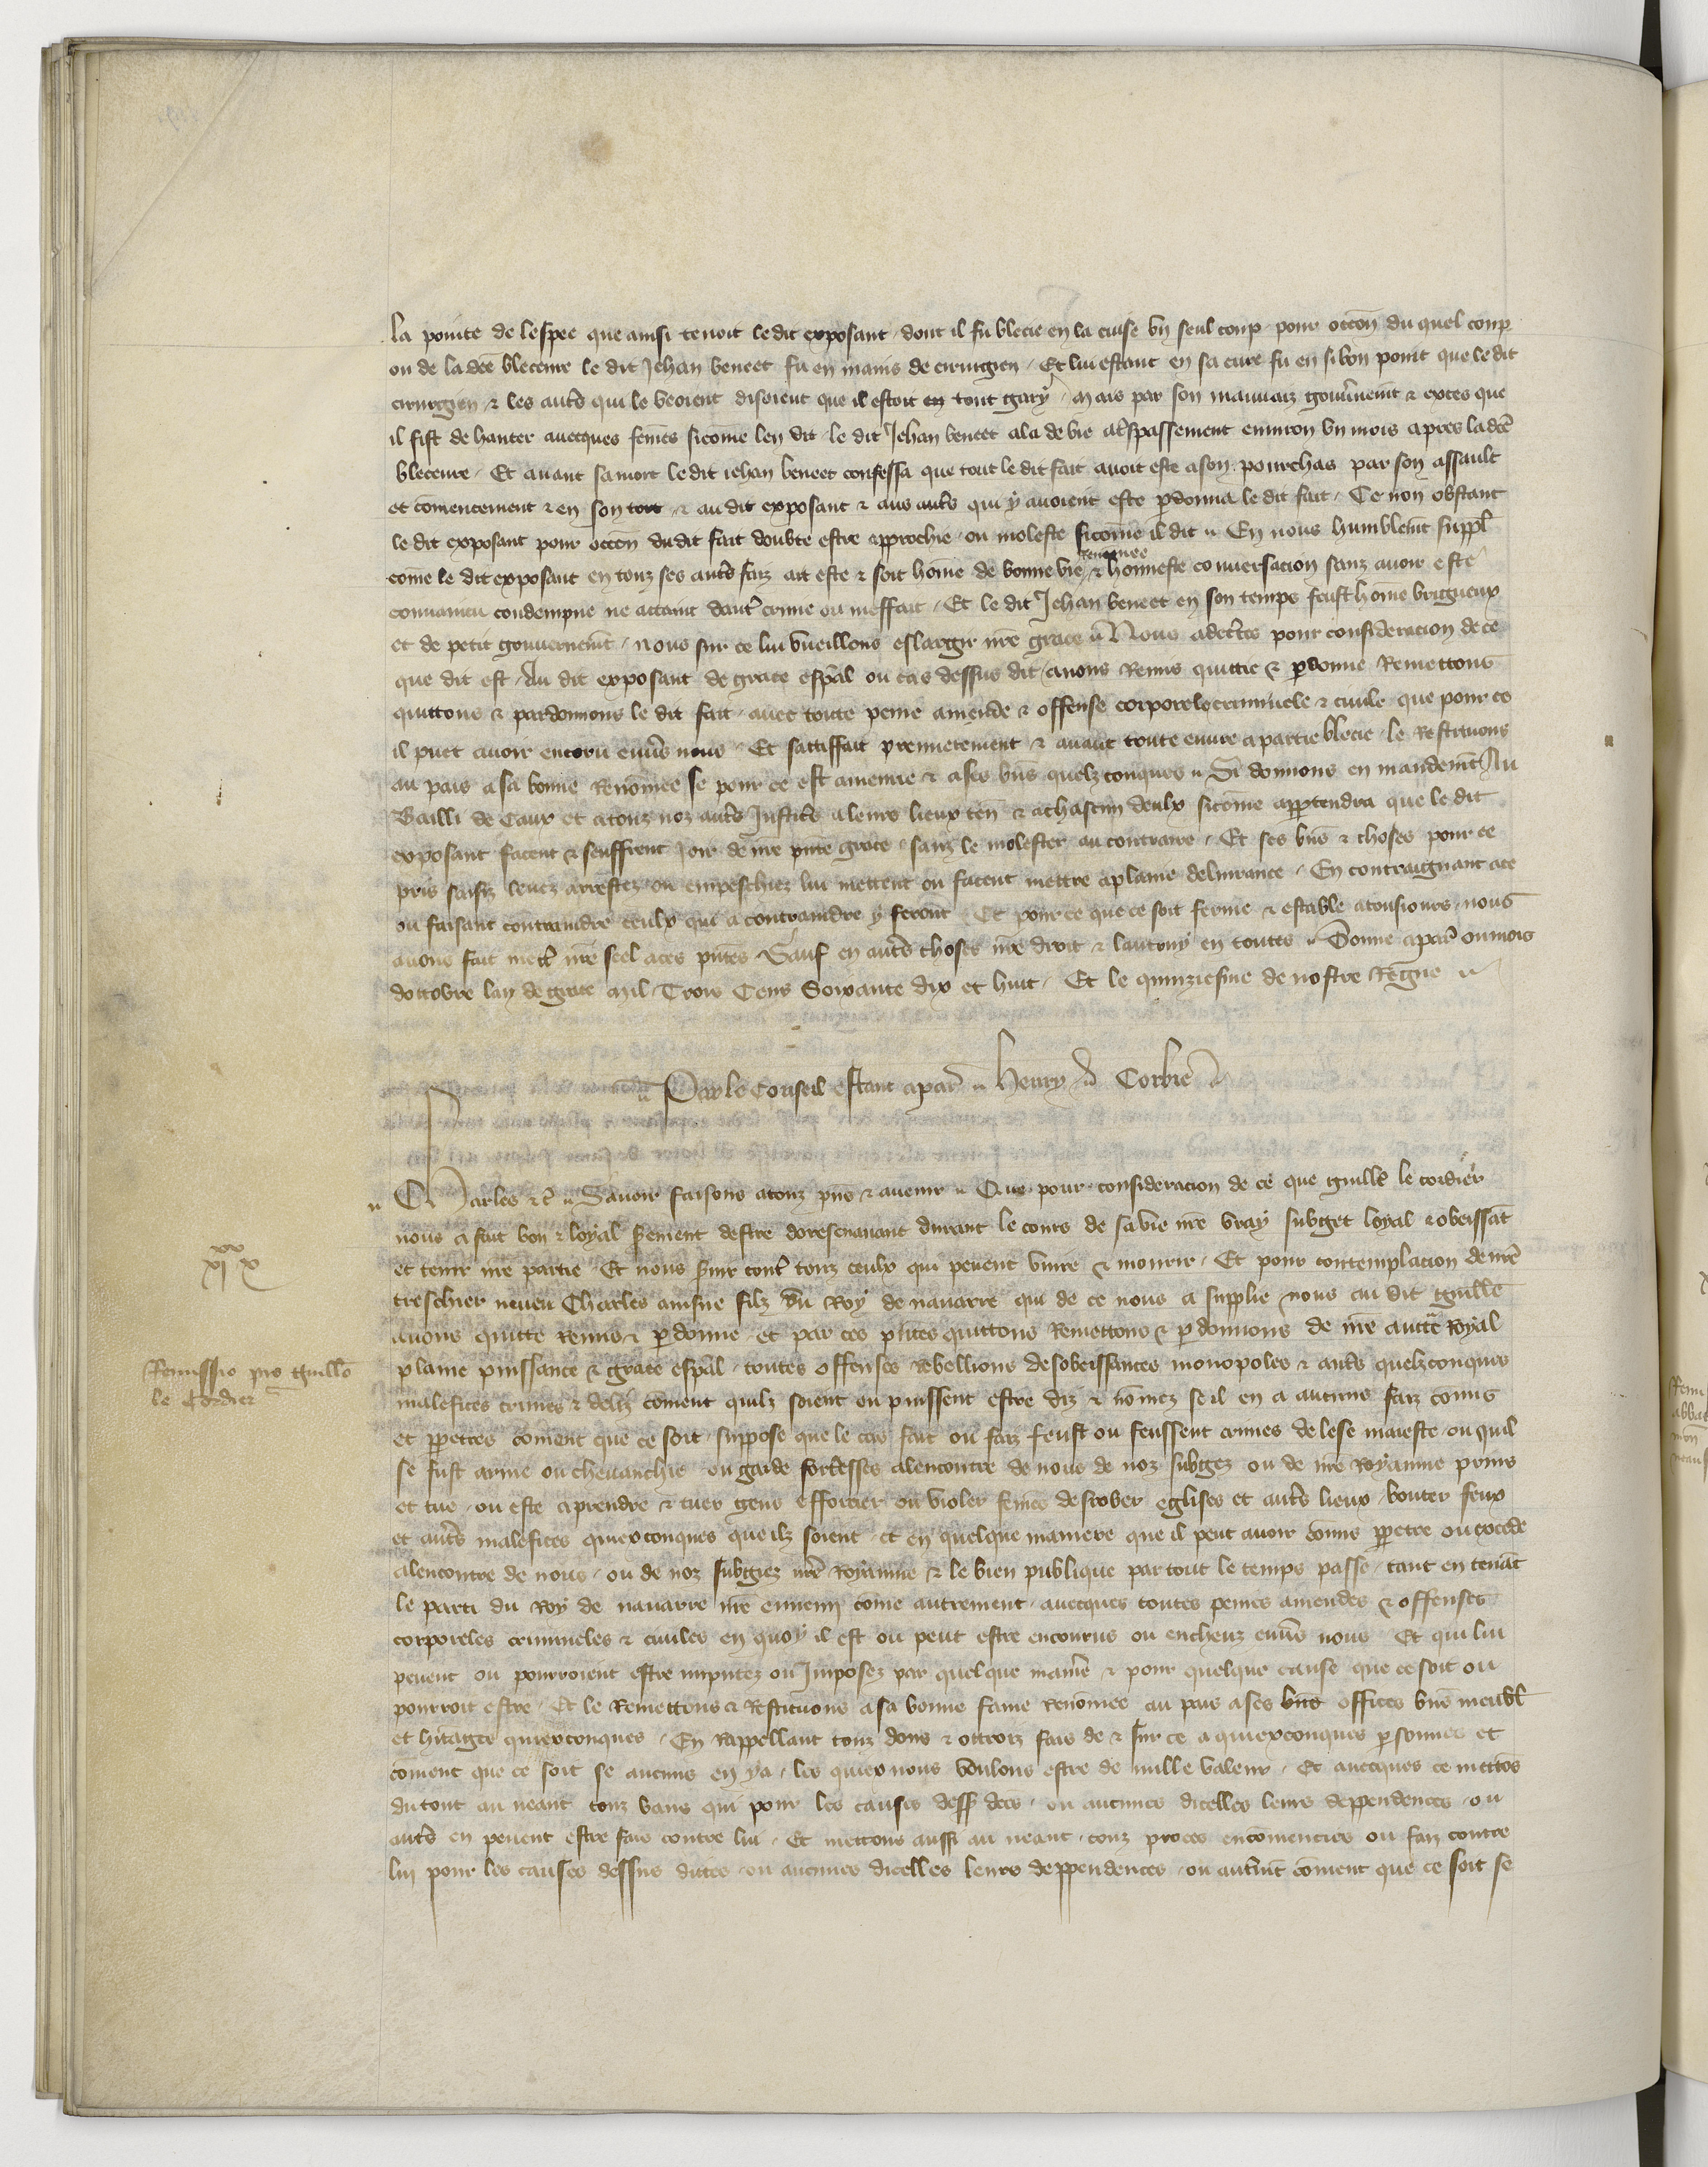 la pointe de lespee que ainsi tenoit ledit exposant dont il fu blecie en la cuise vn seul coup pour occōn du quel coup
ou de la dcē bleceure le dit Jehan beneet fu en mains de cirurgien Et lui estant en sa cure fu en si bon point que le dit
cirurgien & les autᵉs qui le veoient disoient que il estoit en tout gary Mais par son mauuaiz gouūnemēt & exces que
il fist de hanter auecques fēmes sicōme len dit le dit Jehan beneet ala de vie a tᵉspassement enuiron vn mois apres la dcē
bleceure Et auant sa mort ledit iehan beneet confessa que tout le dit fait auoit este a son pourchas par son assault
et cōmencement & en son tort & au dit exposant & aus autᵉs qui y auoient este ꝑdonna le dit fait Ce non obstant
le dit exposant pour occōn du dit fait doubte estre approchie ou moleste sicōme il dit En nous humblemēt suppl̄
cōme le dit exposant en touz ses autᵉs faiz ait este & soit hōme de bonne vie renōmee & honneste conuersacion sanz auoir este
conuaincu condempne ne attaint dautᵉ crime ou meffait Et le dit Jehan beneet en son temps feust hōme brigueux
et de petit gouuernemēt nous sur ce lui vueillons eslargir nrē grace Nous adecᵉtes pour consideracion de ce
que dit est Au dit exposant de grace esp̄al ou cas dessus dit auons Remis quittie & ꝑdonne Remettons
quittons & pardonnons le dit fait auec toute peine amende & offense corporele criminele & ciuile que pour ce
il puet auoir encoru enuūs nous Et satiffait premierement & auant toute euure a partie blecie le Restituons
au pais a sa bonne Renōmee se pour ce est amenrie & a ses biēs quelzconques Si donnons en mandemēt Au
Bailli de Caux et a touz noz autᵉs Justicᵉs a leurs lieux ten̄ & a chascun deulx sicōme apptendra que le dit
exposant facent & seuffrent joir de nrē p̄nte grace sanz le molester au contraire Et ses biēs & choses pour ce
pris saisiz leuez arrestez ou empeschiez lui mettent ou facent mettre a plaine deliurance En contraignant a ce
ou faisant contraindre ceulx qui a contraindre y feront Et pour ce que ce soit ferme & estable a tousiours nous
auons fait mettᵉ nrē seel a ces p̄ntes Sauf en autᵉs choses nrē droit & lautruy en toutes Donne a par̄ ou mois
doctobre lan de grace Mil Trois Cens Soixante dix et huit Et le quinziesme de nostre Regne
Par le Conseil estant a par̄ Henry d̄ Corbie
Charles &c̄ Sauoir faisons a touz p̄ns & auenir Que pour consideracion de ce que guille le cordier
nous a fait bon & loyal sement destre doresenauant durant le cours de sa vie nrē vray subget loyal & obeissāt
et tenir nrē partie Et nous suir contᵉ touz ceulx qui peuent viure & mourir Et pour contemplacion de nrē
treschier neueu Charles ainsne filz du Roy de nauarre qui de ce nous a supplie nous au dit guille
auons quitte Remis & ꝑdonne et par ces p̄ntes quittons Remettons & ꝑdonnons de nrē auctᵉ Royal
plaine puissance & grace esp̄al toutes offenses rebellions desobeissances monopoles & autᵉs quelzconques
malefices crimes & deliz cōment quilz soient ou puissent estre diz & nōmez se il en a aucuns faiz cōmis
et ꝑpetrez cōment que ce soit suppose que le cas fait ou faiz feust ou feussent crimes de lese maieste ou quil
se fust arme ou cheuauchie ou garde fortᵉesses alencontre de nous de noz subgez ou de nrē Royaume prins
et tue ou este a prendre & tuer gens efforcier ou violer fēmes desrober eglises et autᵉs lieux bouter feux
et autᵉs malefices quiexconques que ilz soient et en quelque maniere que il peut auoir cōmis ꝑpetre ou excede
alencontre de nous ou de noz subgiez nrē Royaume & le bien publique par tout le temps passe tant en tenāt
le parti du Roy de nauarre nrē ennemi cōme autrement auecques toutes peines amendes & offenses
corporeles crimineles & ciuiles en quoy il est ou peut estre encourus ou encheuz enuūs nous Et qui lui
peuent ou pourroient estre imputez ou Imposez par quelque mañe & pour quelque cause que ce soit ou
pourroit estre Et le Remettons & Restituons a sa bonne fame Renōmee au pais a ses biēs offices biēs meubl̄
et hitages quiexconques En Rappellant touz dons & ottroiz fais de & sur ce a quiexconques ꝑsonnes et
cōment que ce soit se aucuns en y a les quiex nous voulons estre de nulle valeur Et auecques ce mettōs
du tout au neant touz bans qui pour les causes dess dcēs ou aucunes dicelles leurs deppendences ou
autᵉs en peuent estre fais contre lui Et mettons aussi au neant touz proces encōmenciez ou faiz contre
lui pour les causes dessus dites ou aucunes dicelles leurs deppendences ou autᵉmēt cōment que ce soit se
xx xx
xj x
Remissio pro guille
le Cordier